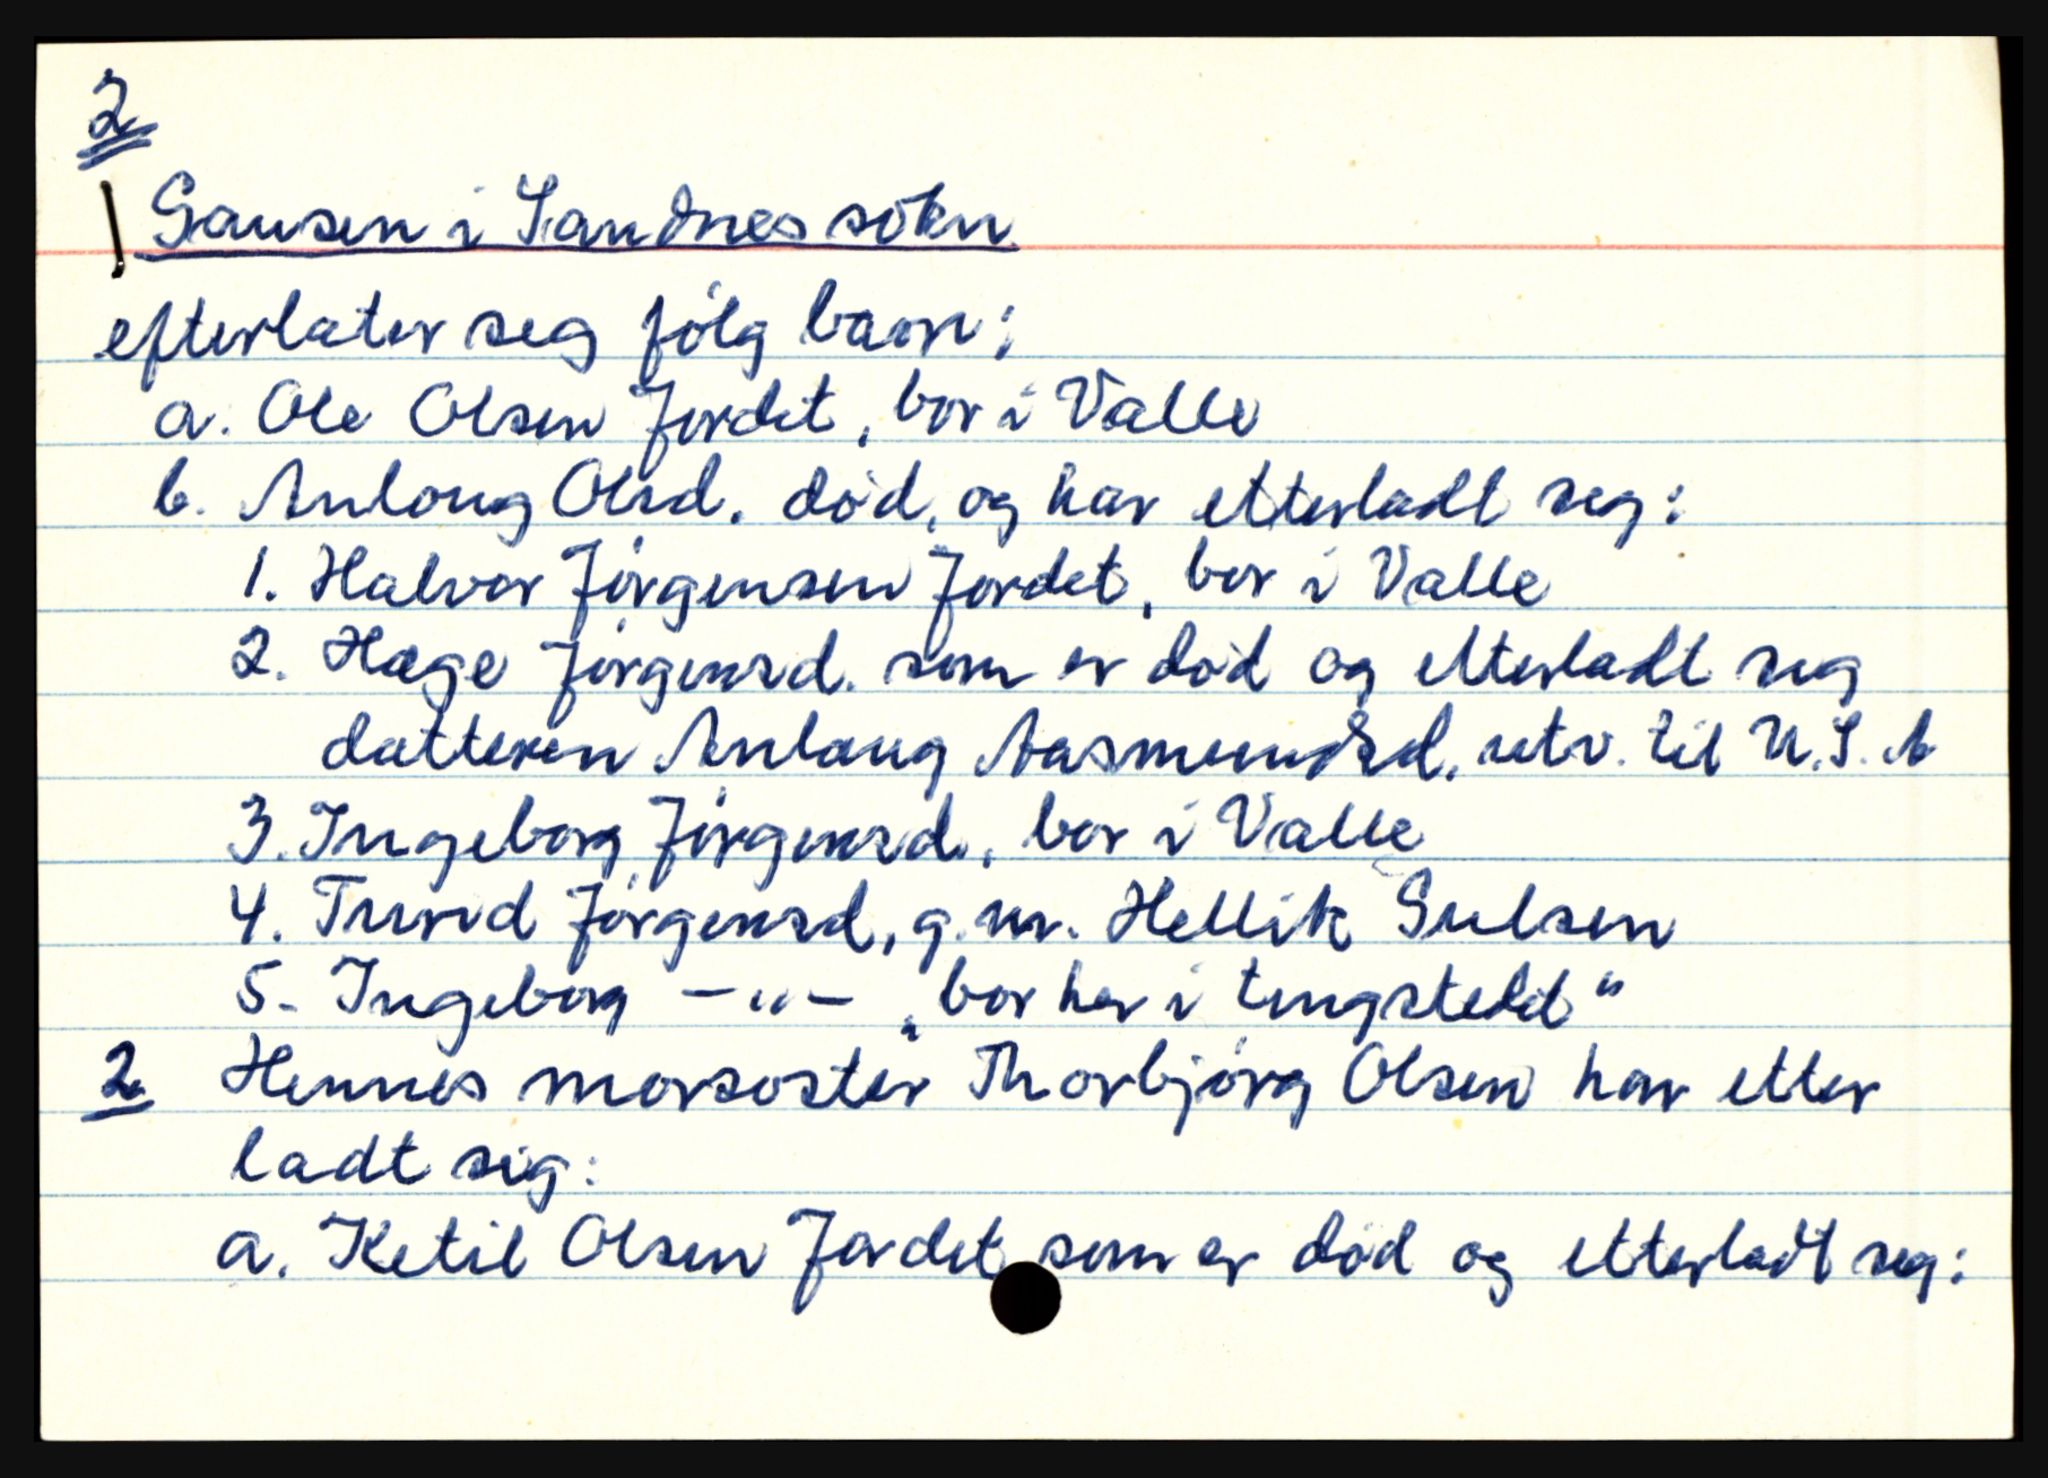 2
Gausen i Sandnes sokn
efterlater seg følg barn:
a. Ole Olsen Jordet, bor i Valle
b. Anloug Olsd. død, og har etterladt seg:
1. Halvor Jørgensen Jordet, bor i Valle
2. Hæge Jørgensd. som er død og etterladt seg
datteren Anlaug Aasmundsd. utv. til U.S.A
3. Ingeborg Jørgensd., bor i Valle
4. Turid Jørgensd, g.m. Hellik Gulsen
5. Ingeborg — " — „bor her i tingstedd"
2 Hennes morsøster Thorbjørg Olsen har etter
ladt sig:
a. Ketil Olsen Jordet som er død og etterladt seg: